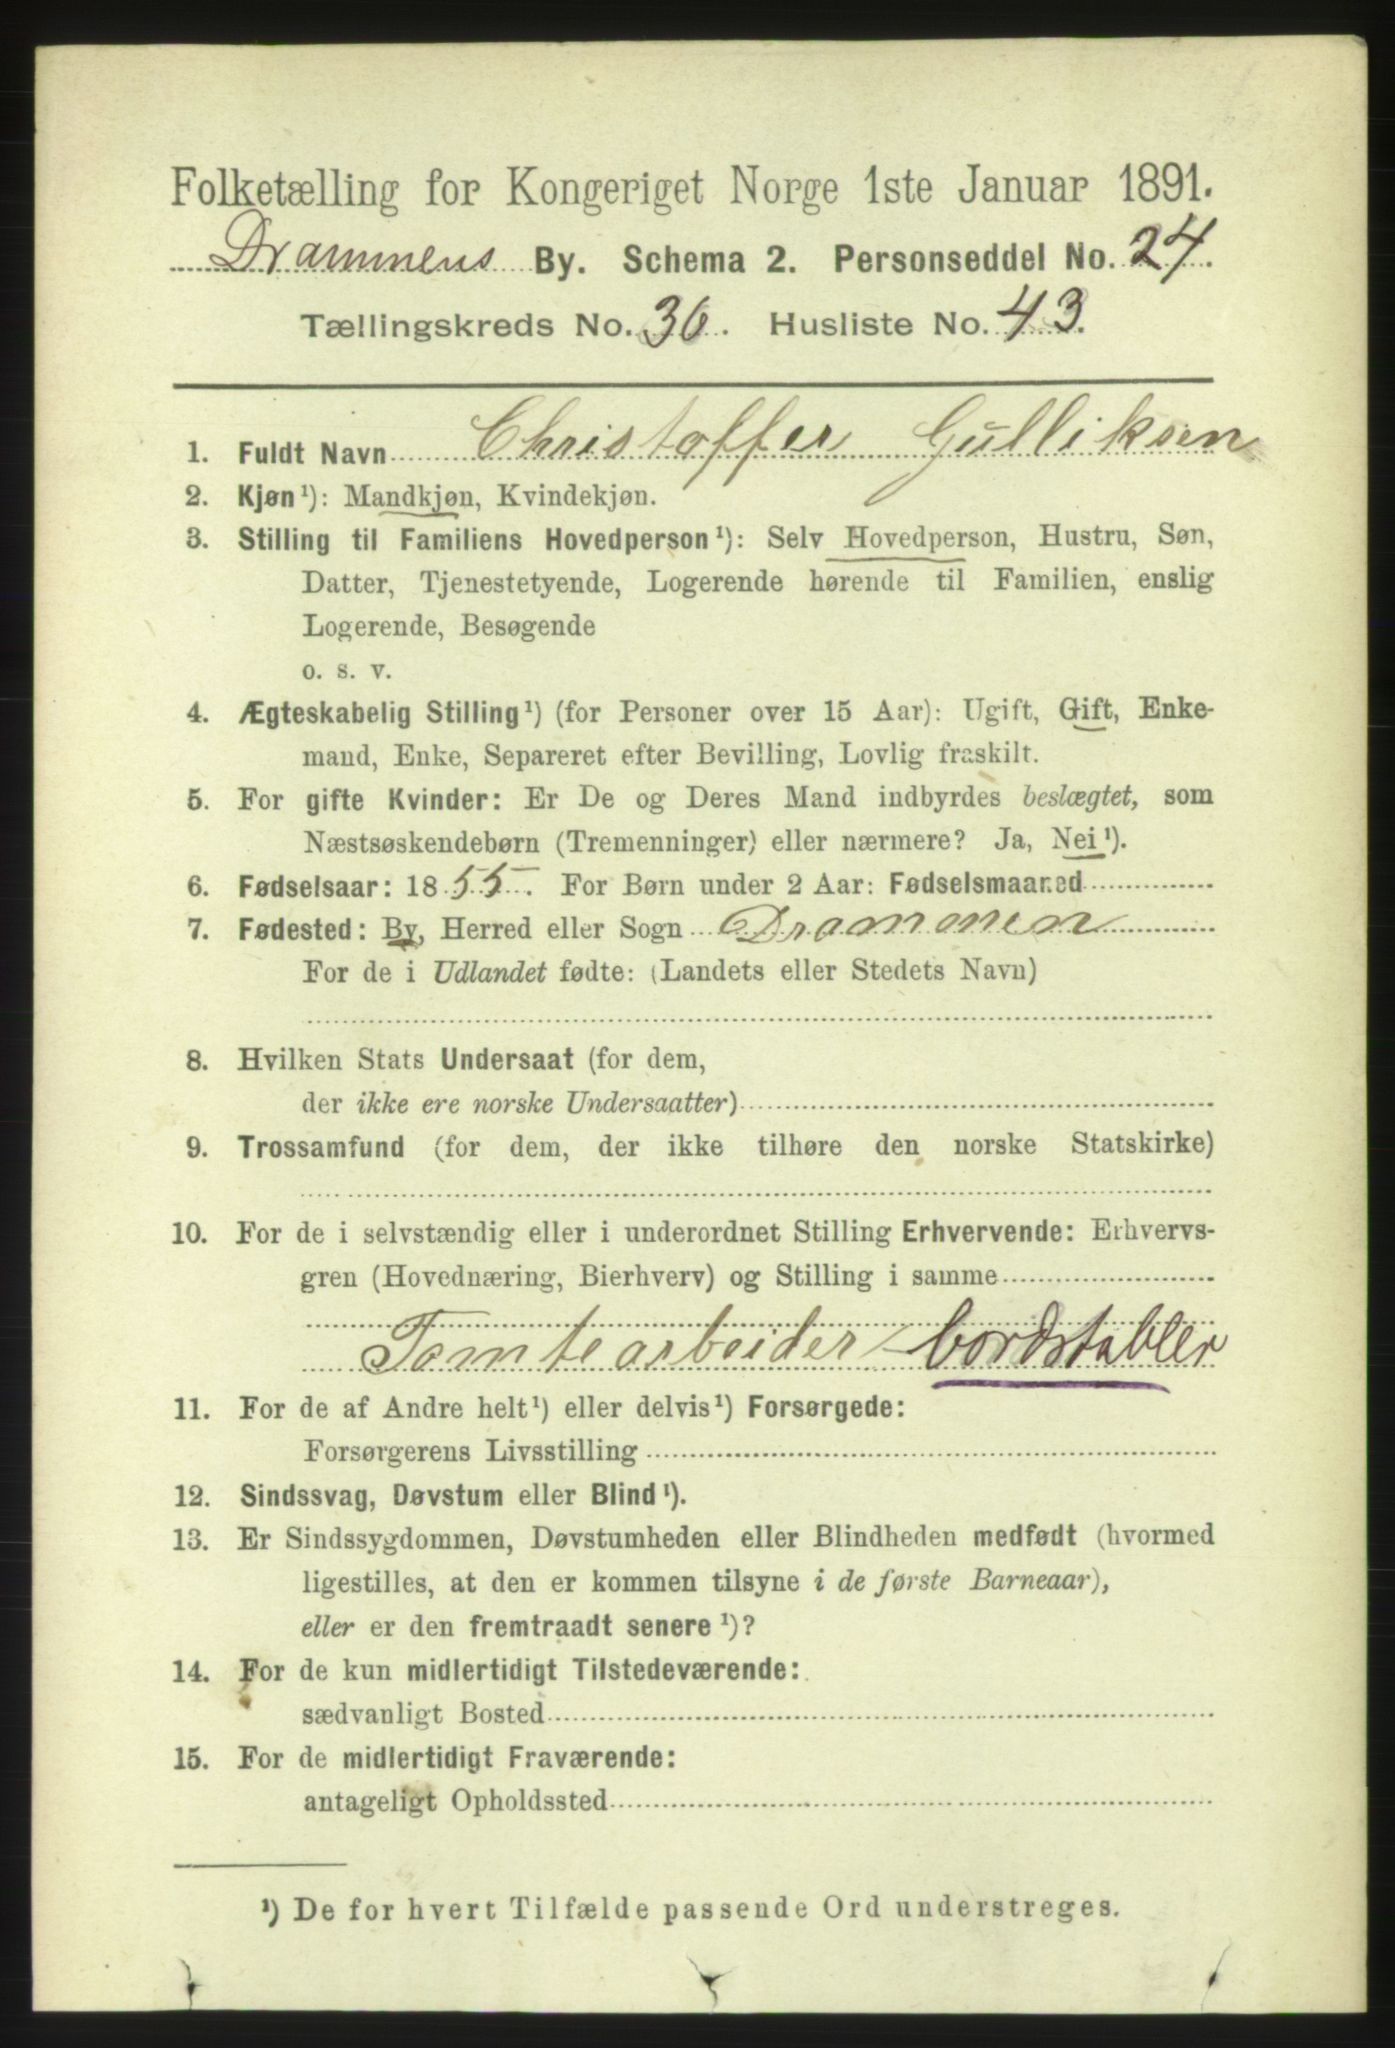 Folketælling for Kongeriget Norge 1ste Januar 1891.
Drammens By. Schema 2. Personseddel No. 24.
Tællingskreds No. 36. Husliste No. 43.
1. Fuldt Navn Christoffer Gulliksen
2. Kjøn¹): Mandkjøn, Kvindekjøn.
3. Stilling til Familiens Hovedperson¹): Selv Hovedperson, Hustru, Søn,
Datter, Tjenestetyende, Logerende hørende til Familien, enslig
Logerende, Besøgende
o. s. v.
4. Ægteskabelig Stilling¹) (for Personer over 15 Aar): Ugift, Gift, Enke-
mand, Enke, Separeret efter Bevilling, Lovlig fraskilt.
5. For gifte Kvinder: Er De og Deres Mand indbyrdes beslægtet, som
Næstsøskendebørn (Tremenninger) eller nærmere? Ja, Nei¹).
6. Fødselsaar: 1855. For Børn under 2 Aar: Fødselsmaaned
7. Fødested: By, Herred eller Sogn Drammen
For de i Udlandet fødte: (Landets eller Stedets Navn)
8. Hvilken Stats Undersaat (for dem,
der ikke ere norske Undersaatter)
9. Trossamfund (for dem, der ikke tilhøre den norske Statskirke)
10. For de i selvstændig eller i underordnet Stilling Erhvervende: Erhvervs-
gren (Hovednæring, Bierhverv) og Stilling i samme
Tomtearbeider - bordstabler
11. For de af Andre helt¹) eller delvis¹) Forsørgede:
Forsørgerens Livsstilling
12. Sindssvag, Døvstum eller Blind¹).
13. Er Sindssygdommen, Døvstumheden eller Blindheden medfødt (hvormed
ligestilles, at den er kommen tilsyne i de første Barneaar),
eller er den fremtraadt senere¹)?
14. For de kun midlertidigt Tilstedeværende:
sædvanligt Bosted
15. For de midlertidigt Fraværende:
antageligt Opholdssted
¹) De for hvert Tilfælde passende Ord understreges.